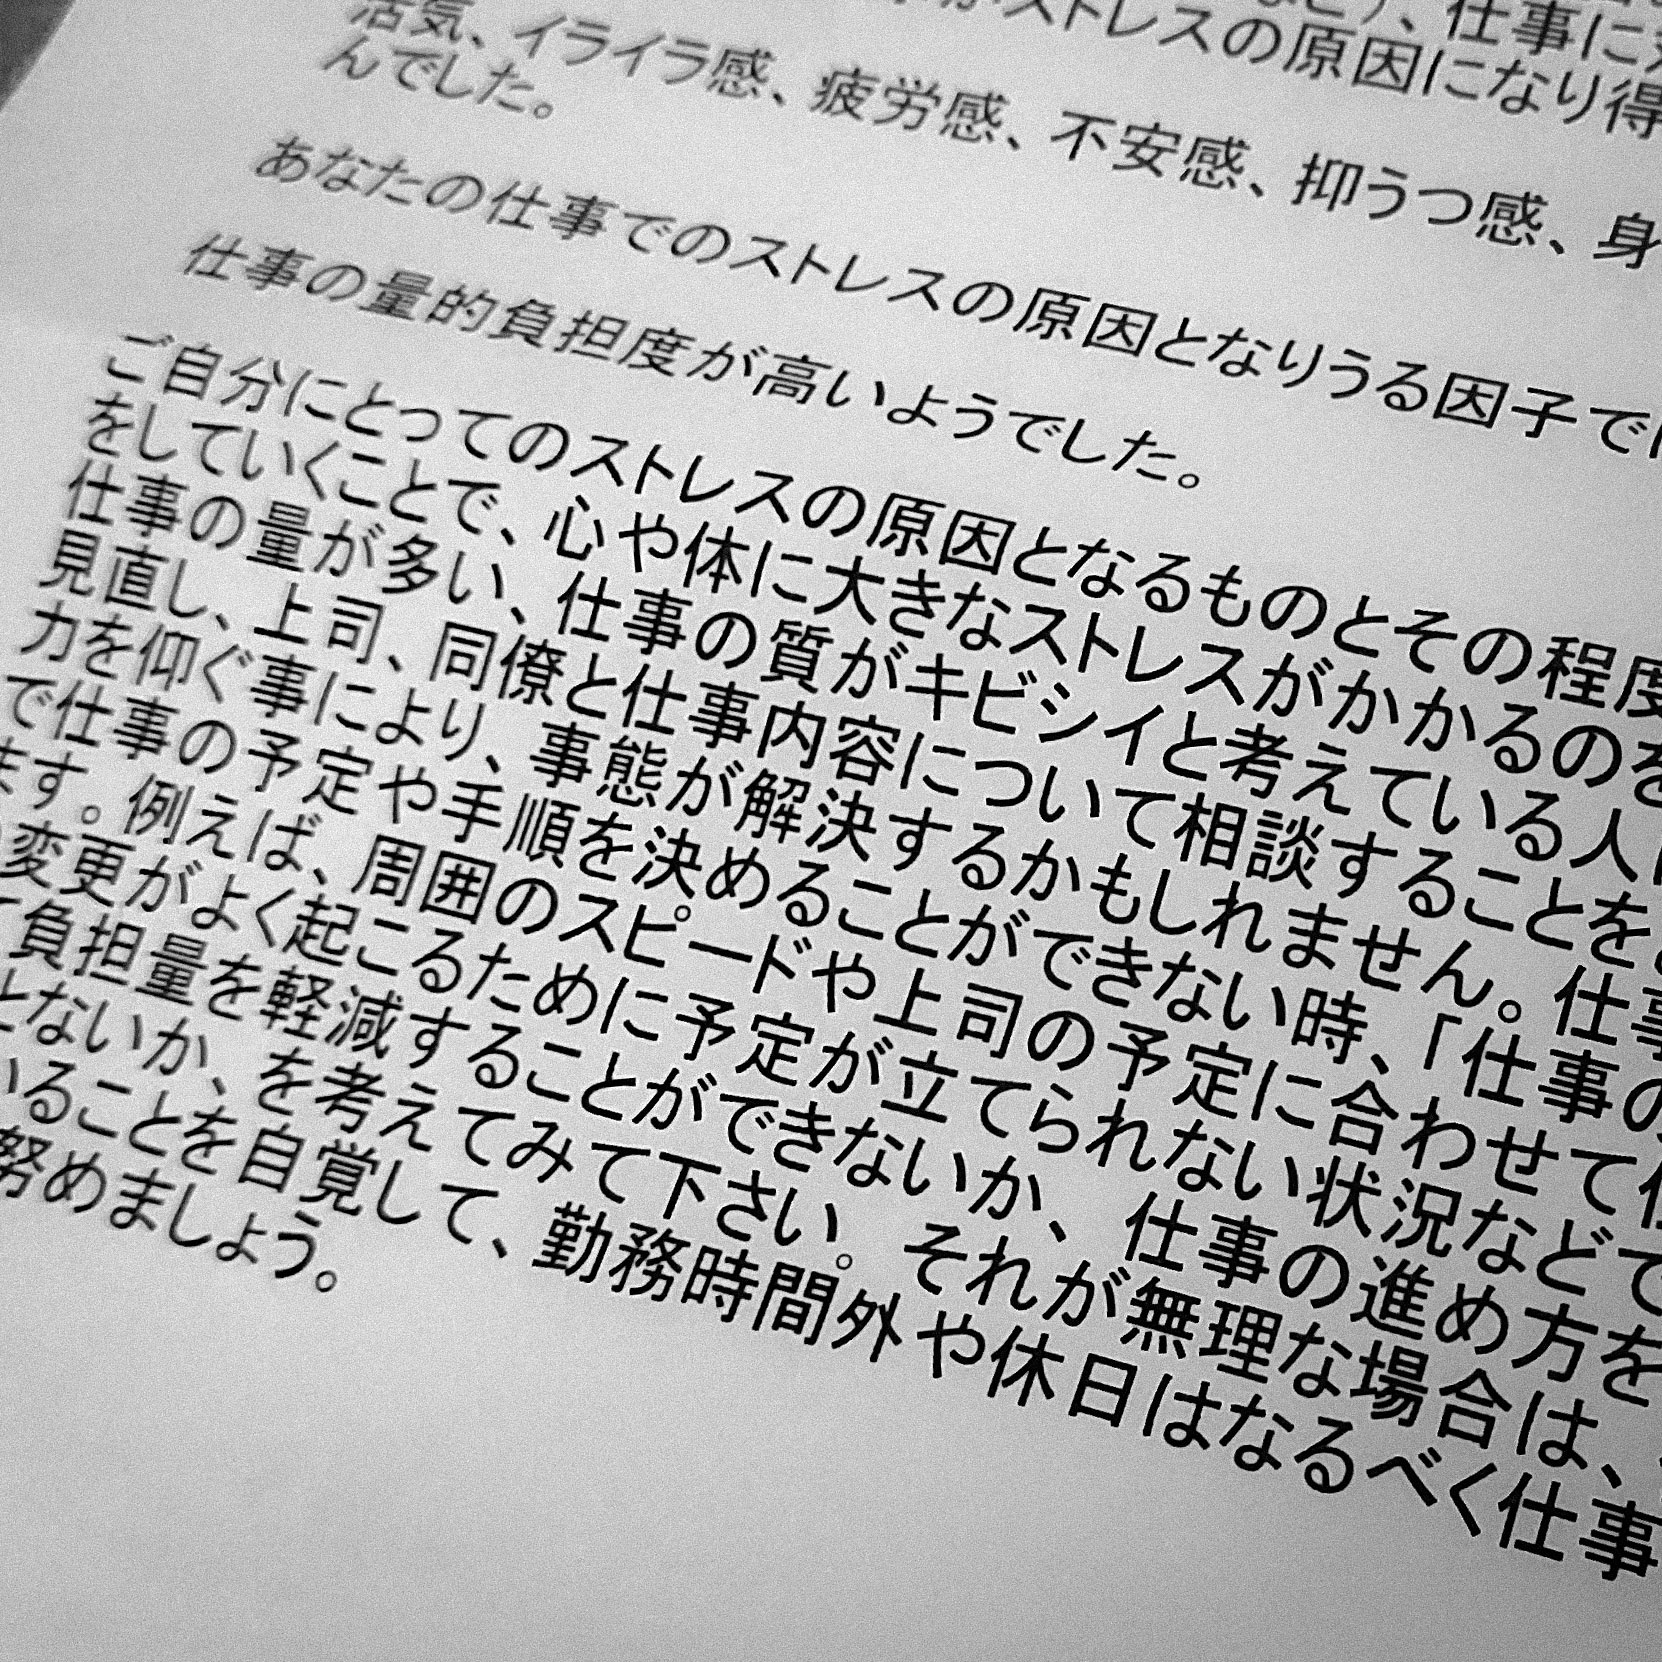 仕事に
がストレスの原因になり得
活気、イライラ感、疲労感、不安感、抑うつ感、身
んでした。
あなたの仕事でのストレスの原因となりうる因子で
仕事の量的負担度が高いようでした。
ご自分にとってのストレスの原因となるものとその程度
をしていくことで、心や体に大きなストレスがかかるのを
仕事の量が多い、仕事の質がキビシイと考えている人
見直し、上司、同僚と仕事内容について相談することを
力を仰ぐ事により、事態が解決するかもしれません。仕事
で仕事の予定や手順を決めることができない時、「仕事の
ます。例えば、周囲のスピードや上司の予定に合わせて仕
変更がよく起こるために予定が立てられない状況などで
て負担量を軽減することができないか、仕事の進め方を
とないか、を考えてみて下さい。それが無理な場合は、
いることを自覚して、勤務時間外や休日はなるべく仕事
努めましょう。